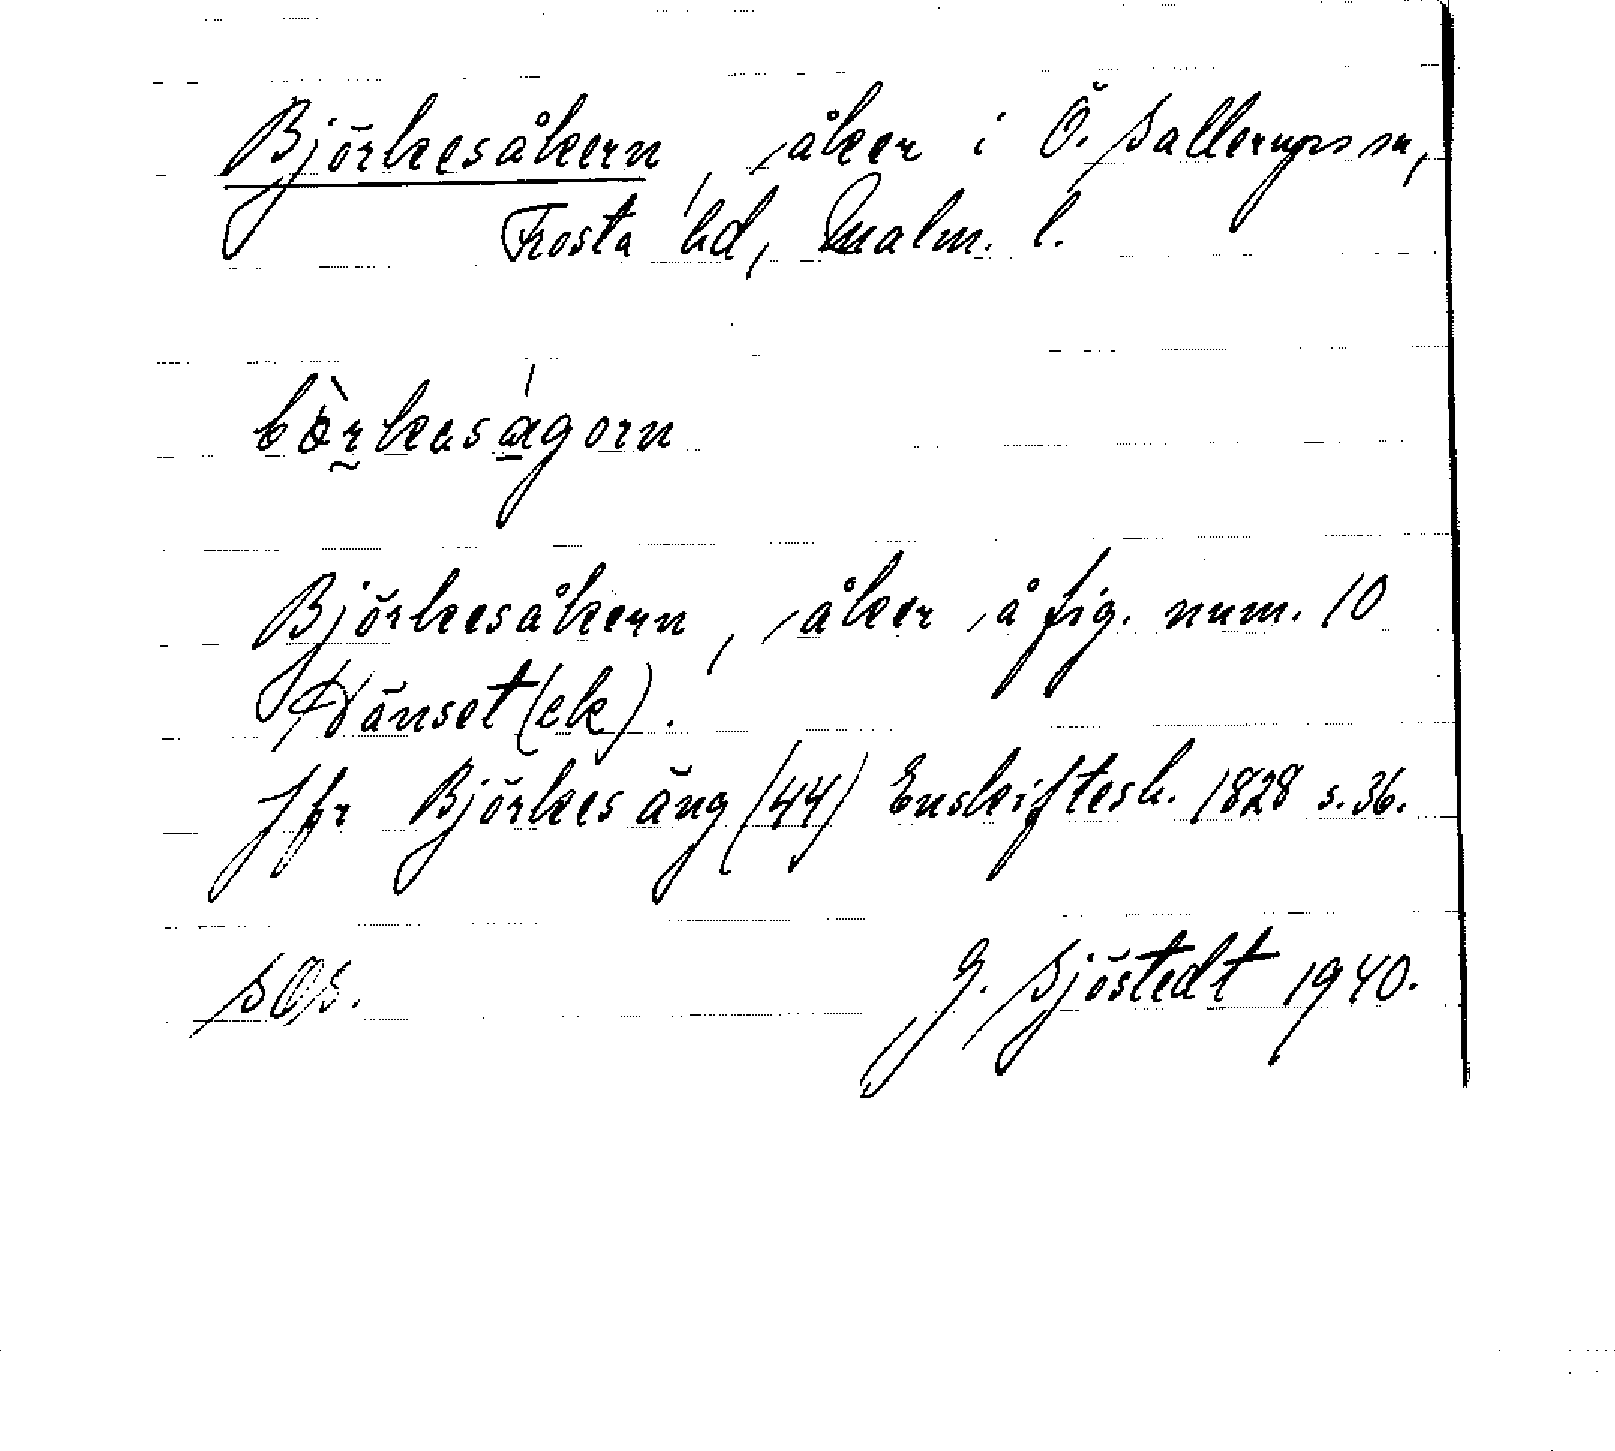 Björkesåkern, åker i Ö. Sallerups sn,
Frosta hd, Malm. l.
bὸrkaságorn
Björkesåkern, åker å fig. num. 10
(ek).
Jfr Björkes äng (44) Enskiftesh. 1828 s. 36.
SOS.
G. Sjöstedt 1940.